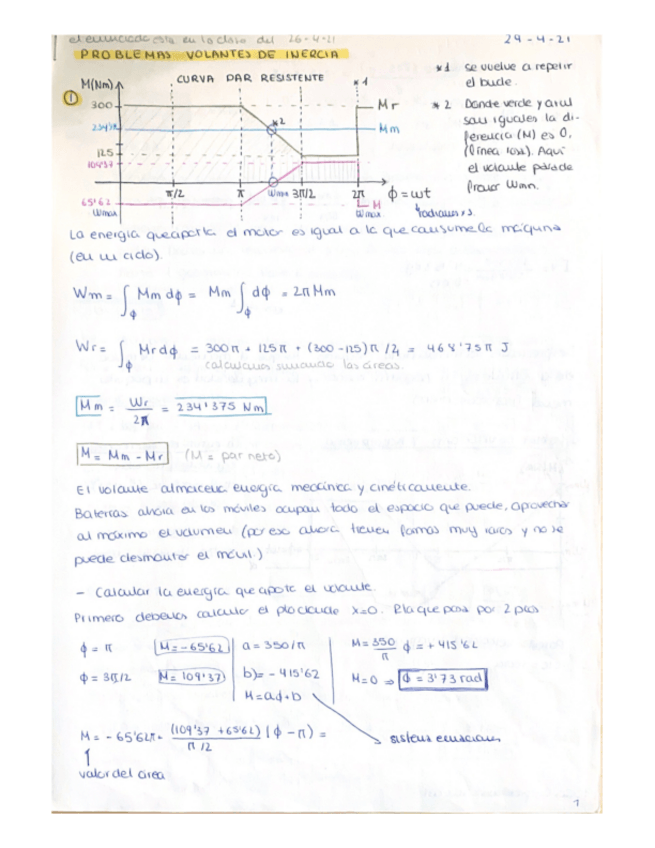 el enunciado esta en la clase del 26-4-21
29-4-21
PROBLEMAS VOLANTES DE INERCIA
①
CURVA PAR RESISTENTE
M(Nm)
*1
300
Mr
234'37
Mm
125
109'37
*2
π/2 π Wmin 3π/2 2π φ = wt
65'62
M
Wmax
Wmax
radianes
*1 se vuelve a repetir
el bucle.
*2 Donde verde y azul
son iguales la di-
ferencia (M) es 0,
(línea rosa). Aqui
el volante pasa de
frenar Wmin.
La energía que aporta el motor es igual a la que consume la máquina
(en un ciclo).
Wm = ∫φ Mm dφ = Mm ∫φ dφ = 2π Mm
Wr = ∫φ Mr dφ = 300π + 125π + (300-125)π/4 = 468'75π J
calculamos sumando las áreas.
Mm = Wr/2π = 234'375 Nm
M = Mm - Mr (M = par neto)
El volante almacena energía mecánica y cinéticamente.
Baterías ahora en los móviles ocupan todo el espacio que puede, aprovechar
al máximo el volumen (por eso ahora tienen formas muy raras y no se
puede desmontar el móvil.)
- Calcular la energía que aporta el volante.
Primero debemos calcular el pto donde x=0. Rla que pasa por 2 ptos
φ = π M = -65'62 a = 350/π M = 350/π φ = + 415'62
φ = 3π/2 M = 109'37 b) = - 415'62 M=0 ⇒ φ = 3'73 rad
M = aφ+b
M = - 65'62π + (109'37 + 65'62)/π/2 (φ - π) =
sistema ecuaciones
valor del area
1